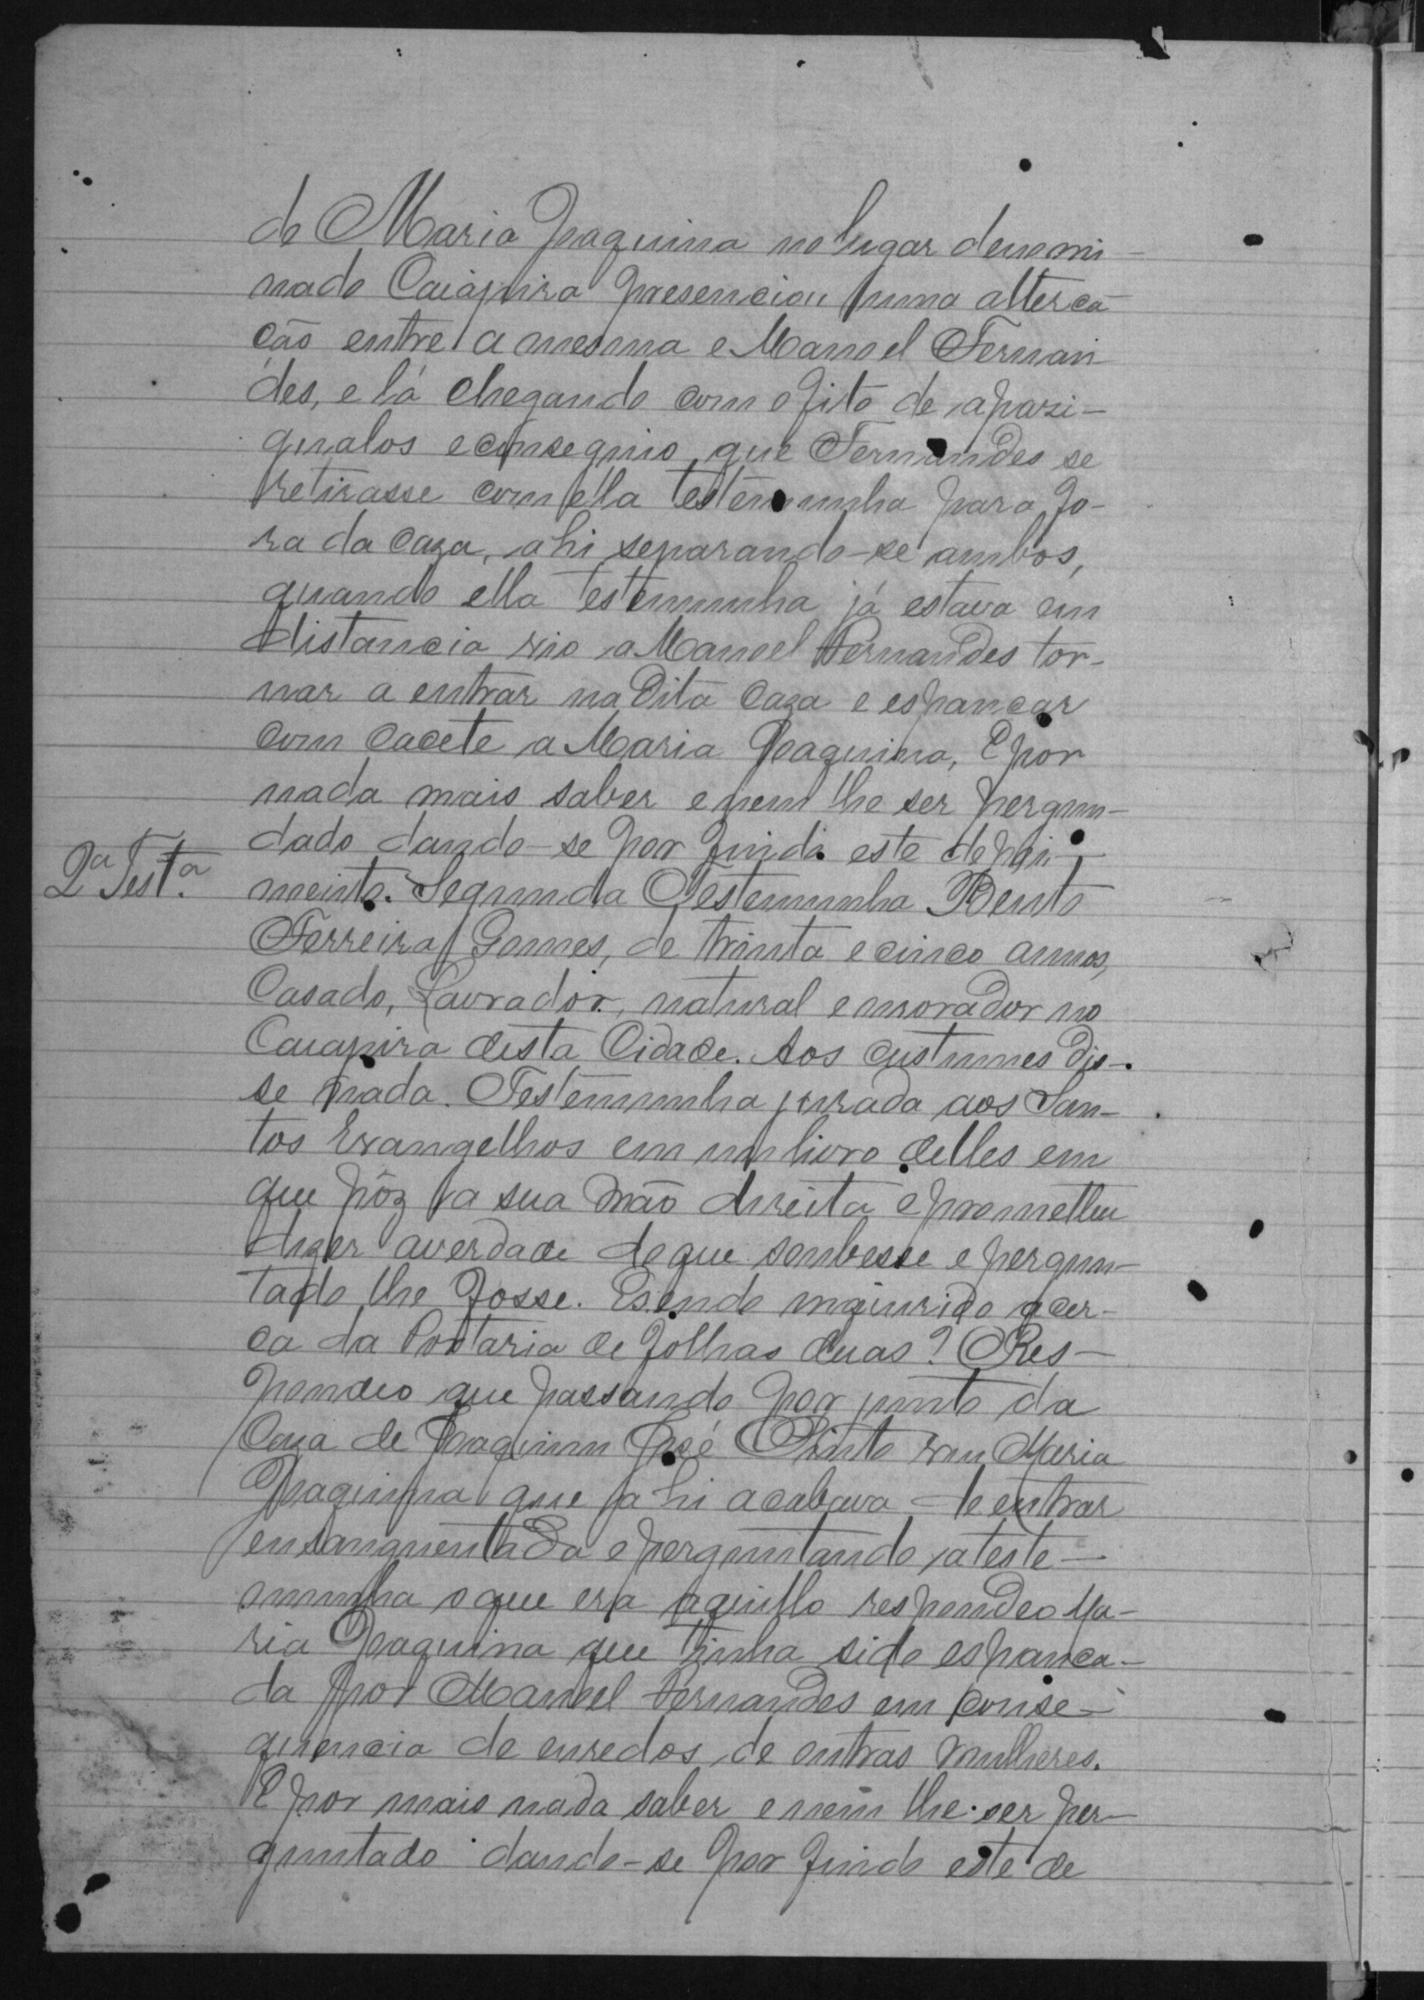 de Maria Joaquina no lugar denomi-
nado Caiapira presenciou huma alterca
ção entre a mesma e Manoel Fernan
des, e lá chegando com o fito de apazi-
gualos e conseguio que Fernandes se
retirasse com ella testemunha para fo-
ra da caza, ahi separando-se ambos,
quando ella testemunha já estava em
distancia vio a Manoel Fernandes tor-
nar a entrar na dita caza e espancar
com cacete a Maria Joaquina, E por
nada mais saber e nem lhe ser pergun-
dado dando-se por findo este depoi-
2ª Testª.
mento. Segunda Testemunha Bento
Ferreira Gomes, de trinta e cinco annos,
Casado, Lavrador, natural e morador no
Caiapira desta Cidade. Aos custumes dis-
se nada. Testemunha jurada aos San-
tos Evangelhos em um livro delles em
que pôz a sua mão direita e prometteu
dizer a verdade do que soubesse e pergun-
tado lhe fosse. E sendo inquirido acer-
ca da Portaria de folhas duas? Res-
pondeo que passando por junto da
Caza de Joaquim José Pinto viu Maria
Joaquina que ahi acabava de entrar
ensanguentada e perguntando a teste-
munha o que era aquillo respondeo Ma-
ria Joaquina que tinha sido espanca-
da por Manoel Fernandes em conse-
quencia de enredos de outras mulheres.
E por mais nada saber e nem lhe ser per-
guntado dando-se por findo este de